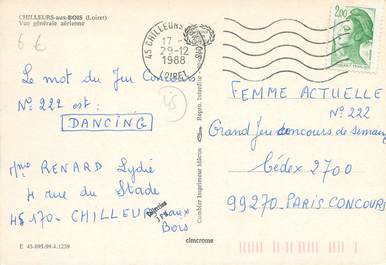 CHILLEURS-aux-BOIS (Loiret)
Vue générale aérienne
6 €
45 CHILLEURS
17-
29-12
1988
LOIRET
2,00
Le mot du Jeu Concours
No 222 est :
DANCING
45
Mme RENARD Lydie
4 rue du Stade
45170 - CHILLEURS aux
Bois
Combier Imprimeur Mâcon
FEMME ACTUELLE
No 222
Grand Jeu concours de semaine
Cédex 2700
99270 - PARIS CONCOURS
E 45-095-99.4.1239
cimcrome